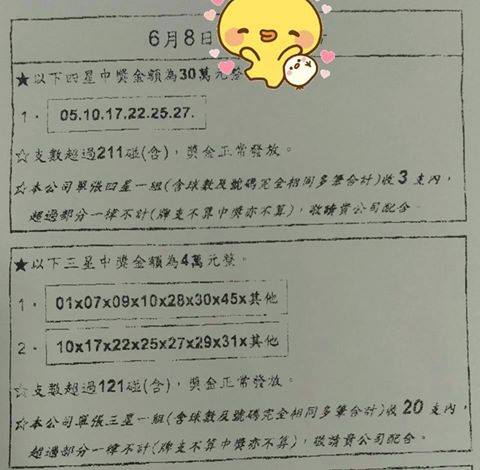 6月8日
★以下四星中獎金額為30萬元整
1. 05.10.17.22.25.27.
☆支數超過211碰(含)，獎金正常發放。
☆本公司單張四星一組(含球數及號碼完全相同多筆合計)收3支內，
超過部分一律不計(牌支不算中獎亦不算)，敬請貴公司配合。
★以下三星中獎金額為4萬元整。
1. 01x07x09x10x28x30x45x其他
2. 10x17x22x25x27x29x31x其他
☆支數超過121碰(含)，獎金正常發放。
☆本公司單張三星一組(含球數及號碼完全相同多筆合計)收20支內，
超過部分一律不計(牌支不算中獎亦不算)，敬請貴公司配合。